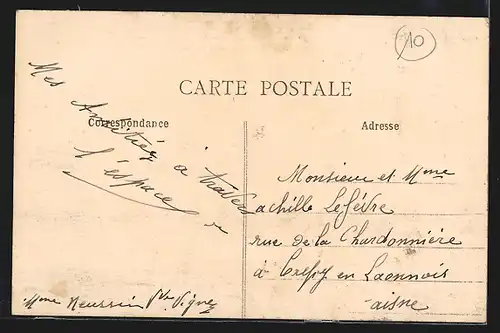 10
CARTE POSTALE
Correspondance
Adresse
Mes Amitiés à travers
l'espace
Monsieur et Mme
achille Lefévre
rue de la Chardonnière
à Crepy en Laonnois
aisne
Mme